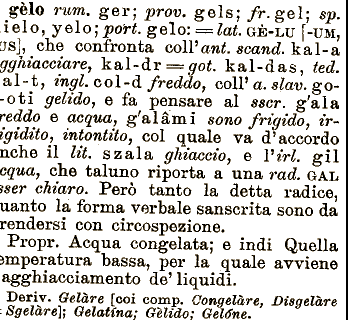 gèlo rum. ger; prov. gels; fr. gel; sp.
ielo, yelo; port. gelo: = lat. GÈ-LU [-UM,
US], che confronta coll' ant. scand. kal-a
gghiacciare, kal-dr = got. kal-das, ted.
al-t, ingl. col-d freddo, coll' a. slav. go-
oti gelido, e fa pensare al sscr. g'ala
reddo e acqua, g'alâmi sono frigido, ir-
igidito, intontito, col quale va d'accordo
nche il lit. szala ghiaccio, e l'irl. gil
cqua, che taluno riporta a una rad. GAL
sser chiaro. Però tanto la detta radice,
uanto la forma verbale sanscrita sono da
rendersi con circospezione.
Propr. Acqua congelata; e indi Quella
emperatura bassa, per la quale avviene
agghiacciamento de' liquidi.
Deriv. Gelàre [coi comp. Congelàre, Disgelàre
Sgelàre]; Gelatína; Gèlido; Gelóne.